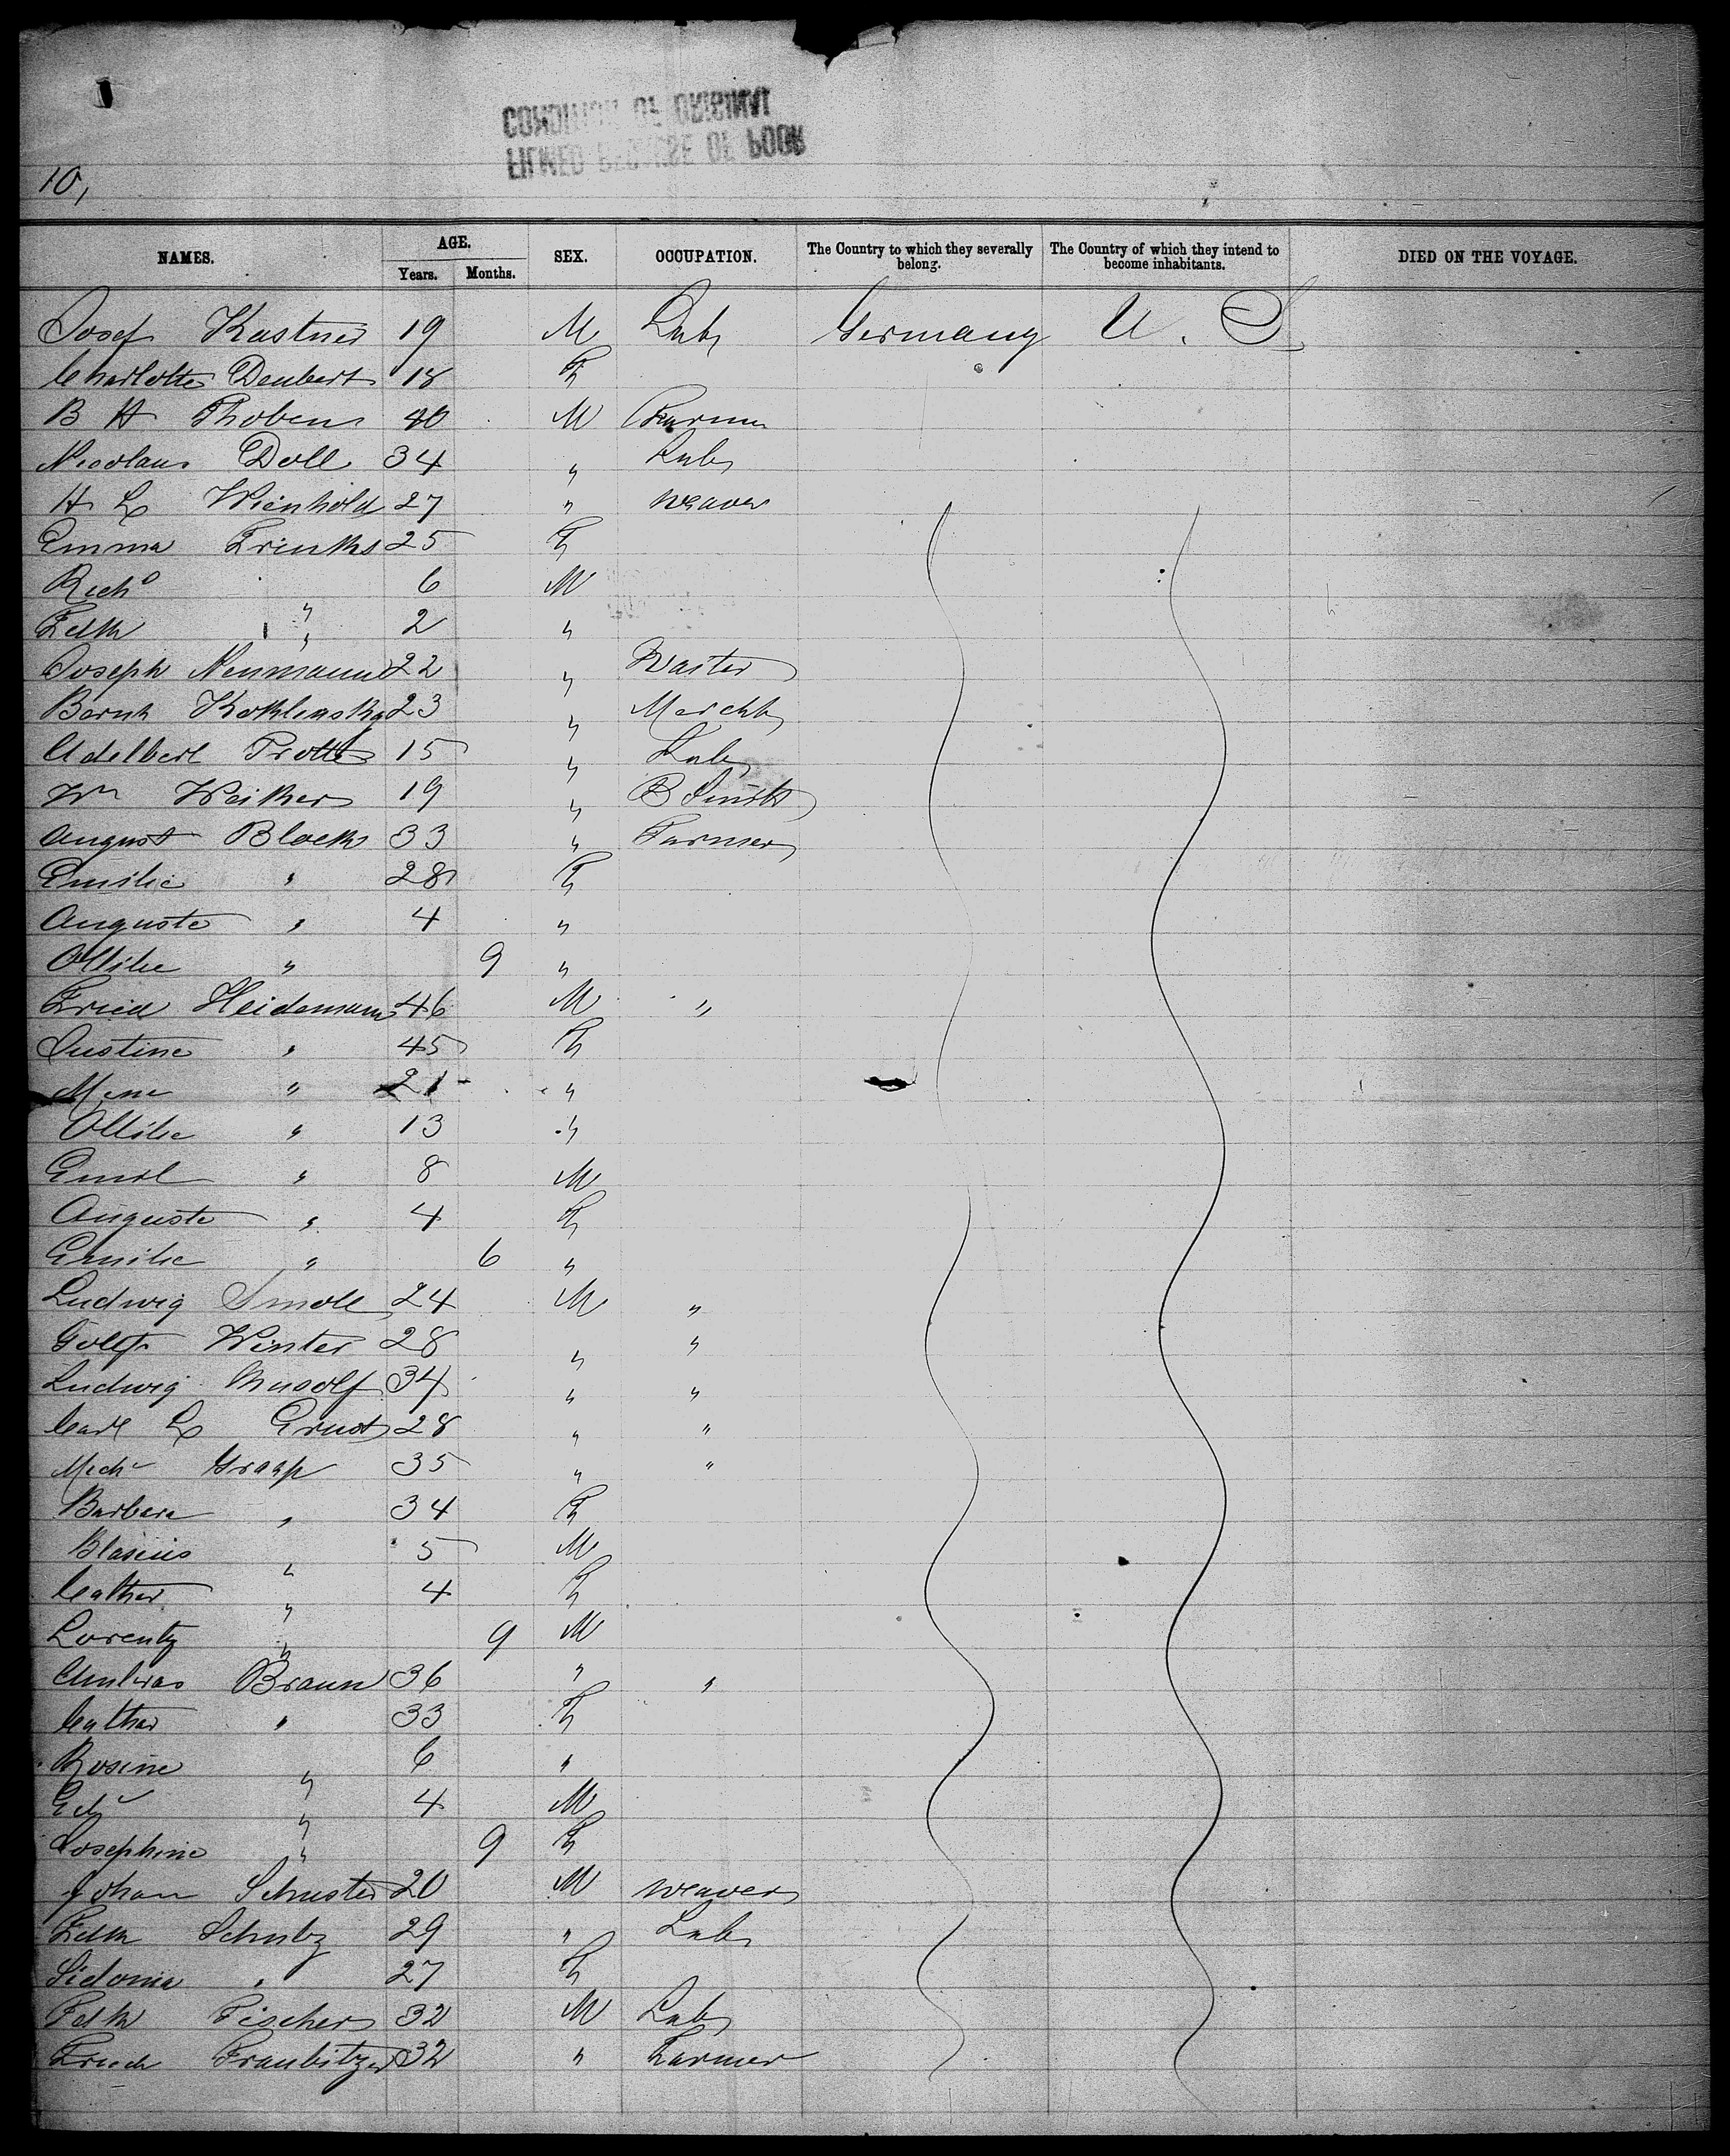 10,
NAMES. AGE. SEX. OCCUPATION. The Country to which they severally belong. The Country of which they intend to become inhabitants. DIED ON THE VOYAGE.
Years. Months.
Josef Kastner 19 M Lab Germany U. S.
Charlotte Deubert 18 F
B H Thoben 40 M Farmer
Nicolaus Doll 34 " Lab
H L Wienhold 27 " weaver
Emma Frinks 25 F
Richd " 6 M
Fdk " 2 "
Joseph Neumann 22 " Waiter
Bernh 23 " Mercht
Adelbert Protte 15 " Lab
Wm Weiker 19 " B Smith
August Block 33 " Farmer
Emilie " 28 F
Auguste " 4 "
Ottilie " 9 "
Fried Heidemann 46 M "
Justine " 45 F
" 21 "
Ottilie " 13 "
Emil " 8 M
Auguste " 4 F
Emilie " 6 "
Ludwig Smoll 24 M "
Winter 28 " "
Ludwig Musolf 34 " "
Carl L Ernst 28 " "
Michl Graap 35 " "
Barbara " 34 F
Blasius " 5 M
Cathar " 4 F
Lorentz " 9 M
Andreas Braun 36 " "
Cathar " 33 F
Rosine " 6 "
Edd " 4 M
Josephine " 9 F
Johan Schuster 20 M weaver
Fdk Schulz 29 " Lab
Sidonia " 27 F
Fdk Fischer 32 M Lab
Fried Fraubitzer 32 " Farmer